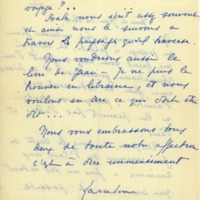 voyage ?..
nous écrit assez souvent
et ainsi nous le suivons à
travers le paysage qu'il traverse.
Nous voudrions aussi le
livre de Jean - Je ne puis le
trouver en librairie, et nous
voulons en ce qui doit être
dit...
Nous vous embrassons tous
deux de toute notre affection
c'est à dire immensément